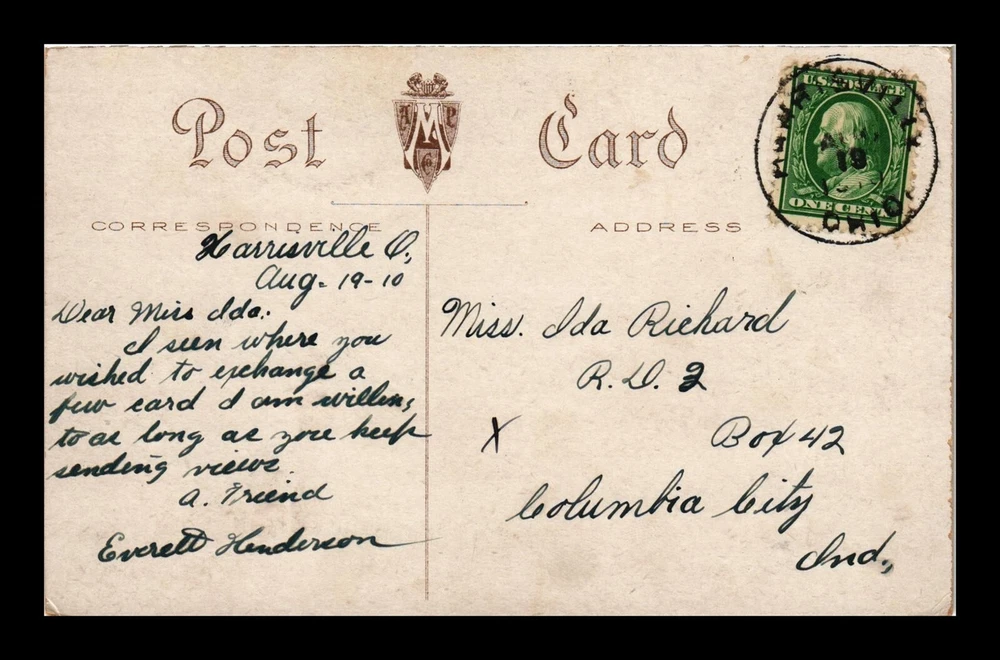 Post Card
A M P C
U.S. POSTAGE
ONE CENT
HARRISVILLE
AUG
19
OHIO
CORRESPONDENCE
ADDRESS
Harrisville O,
Aug. 19-10
Dear Miss Ida.
I seen where you
wished to exchange a
few card I am willing
to as long as you keep
sending views.
A. Friend
Everett Henderson
Miss. Ida Richard
R.D. 3
X
Box 42
Columbia City
Ind.,